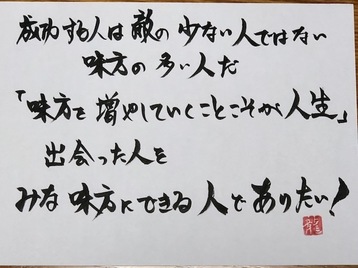 成功する人は敵の少ない人ではない
味方の多い人だ
「味方を増やしていくことこそが人生」
出会った人を
みな味方にできる人でありたい!